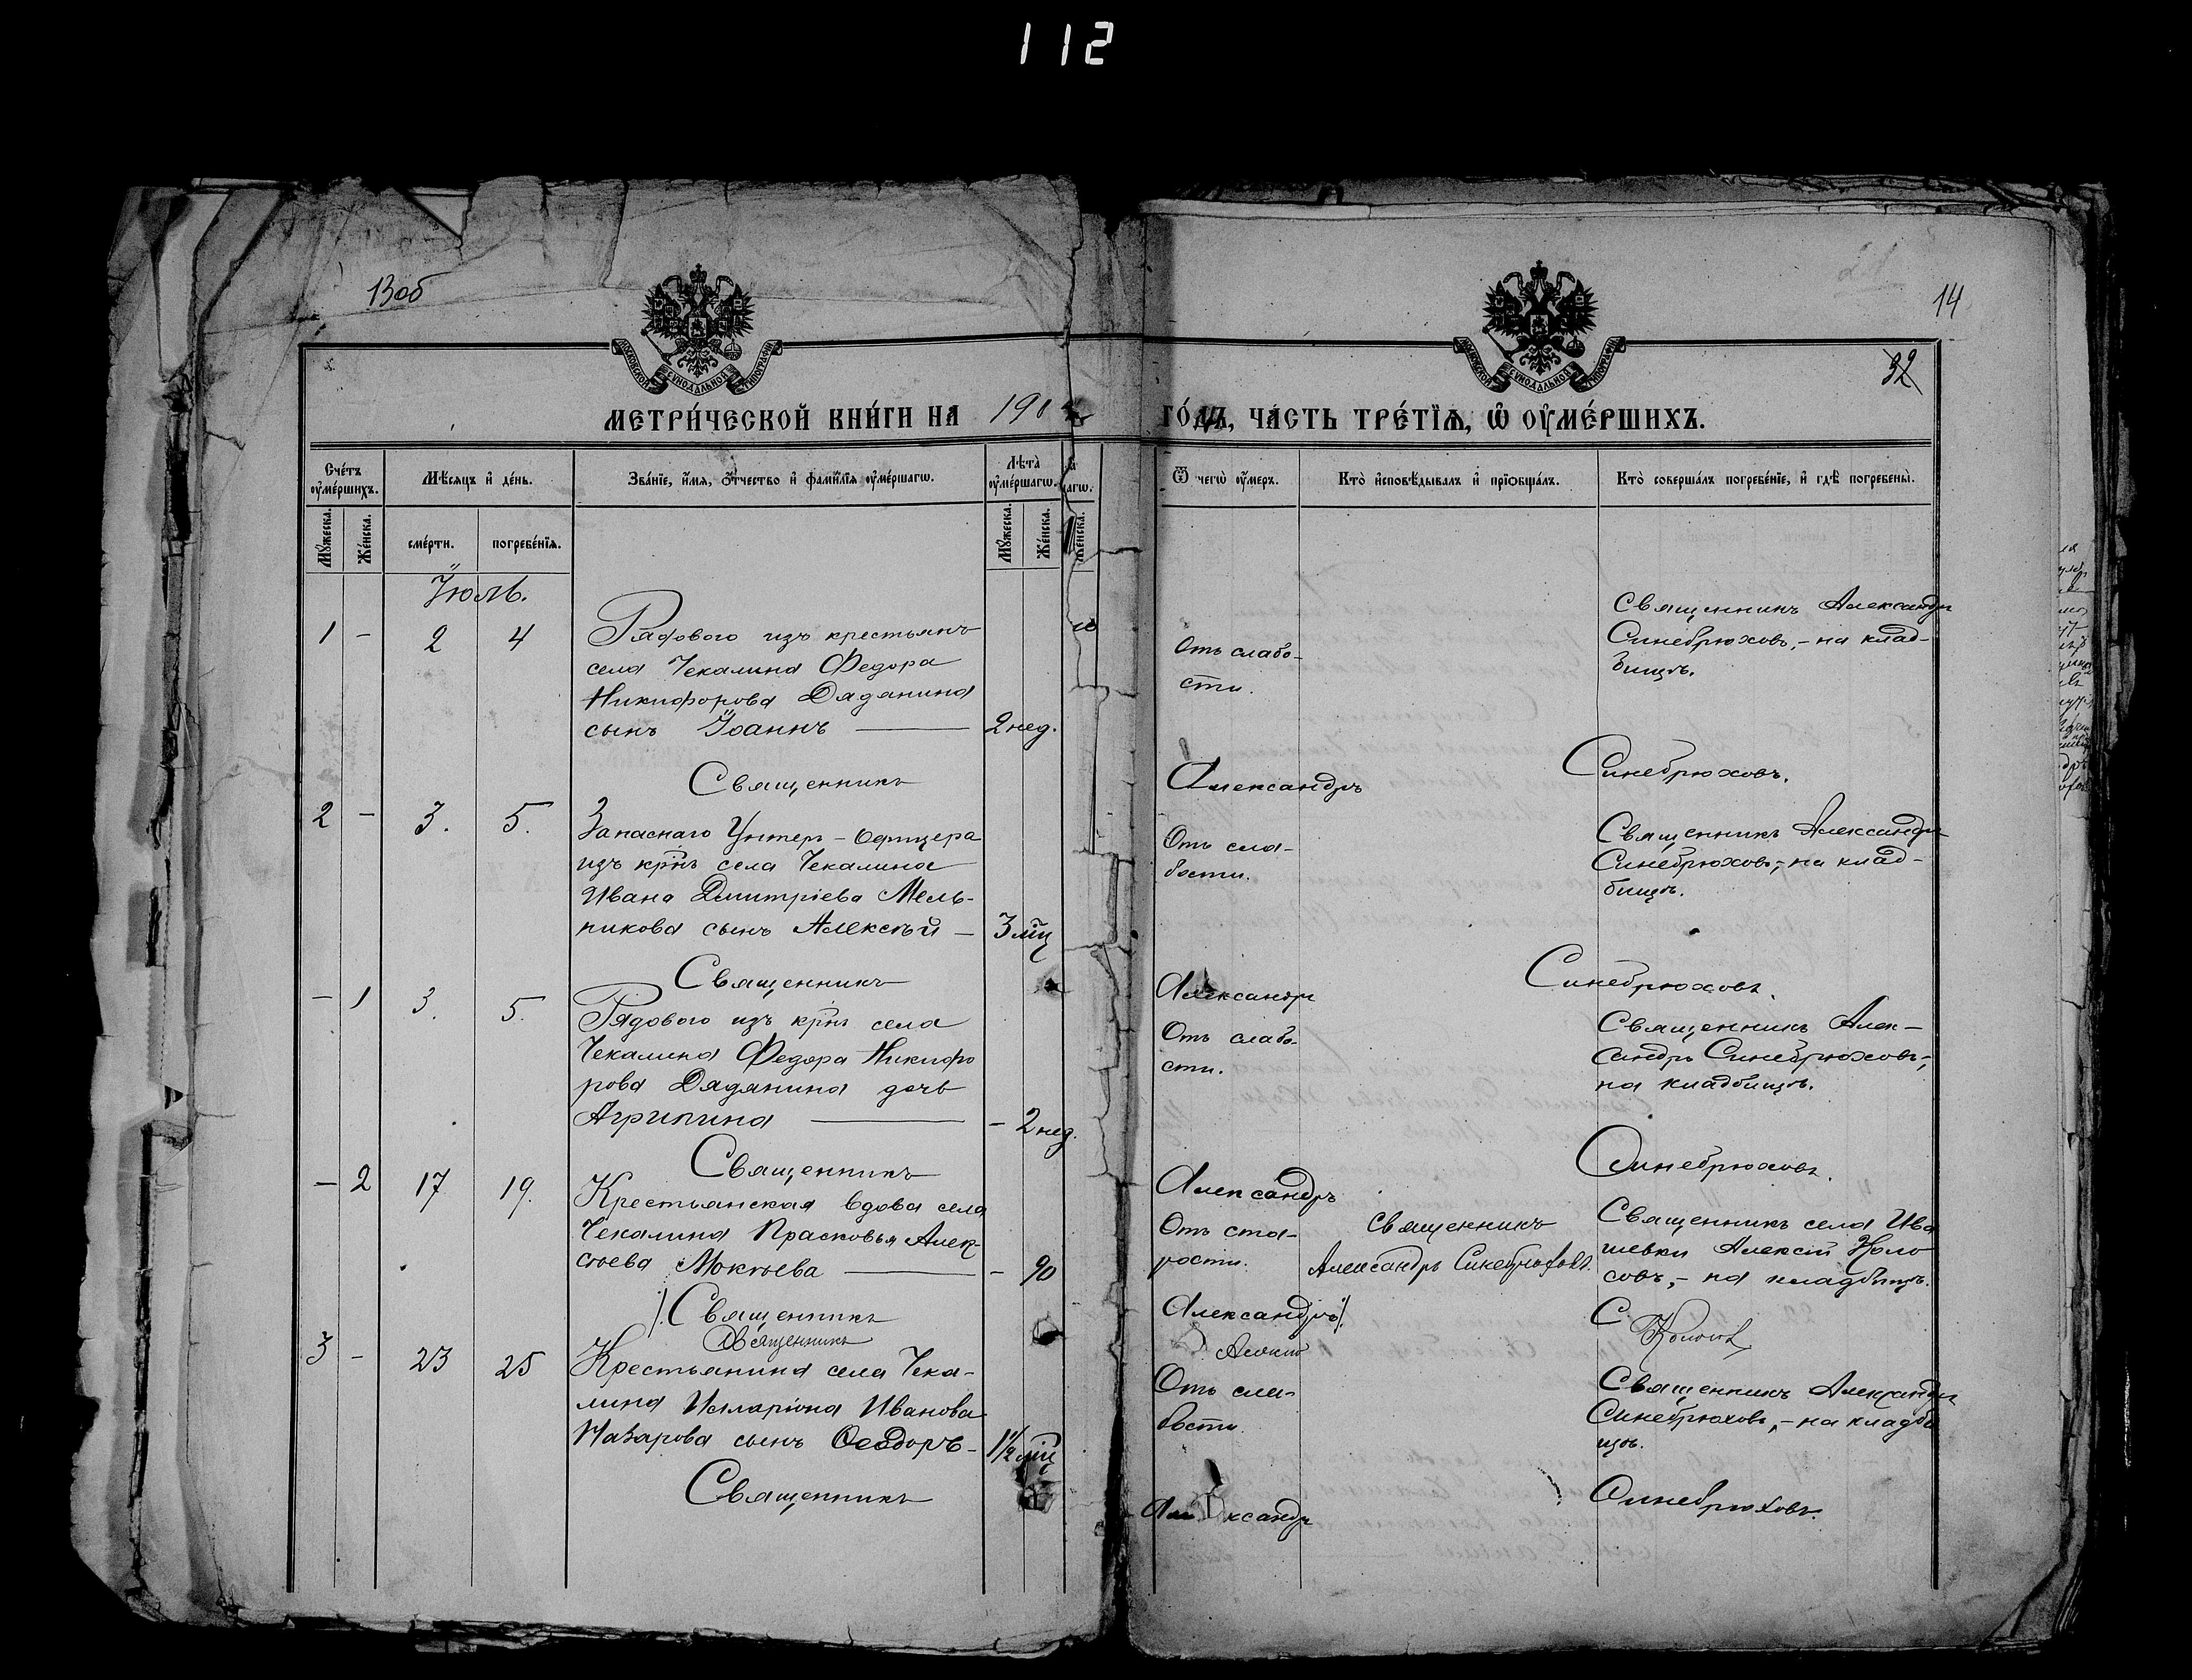 112
13об
14
32
МОСКОВСКОЙ СѴНОДАЛЬНОЙ ТИПОГРАФІИ
МОСКОВСКОЙ СѴНОДАЛЬНОЙ ТИПОГРАФІИ
МЕТРИ́ЧЕСКОЙ КНИ́ГИ НА 190
ГО́ДЪ, ЧА́СТЬ ТРЕ́ТЇѦ, Ѡ҆ ОУ҆МЕ́РШИХЪ.
Сче́тъ оу҆ме́ршихъ.
Мѣ́сяцъ и҆ де́нь.
Зва́нїе, и҆́мя, ѻ҆́тчество и҆ фами́лїя оу҆ме́ршагѡ.
Лѣ́та оу҆ме́ршагѡ.
Ѿ чегѡ̀ оу҆́меръ.
Кто̀ и҆сповѣ́дывалъ и҆ прїѡбща́лъ.
Кто̀ соверша́лъ погребе́нїе, и҆ гдѣ̀ погребены̀.
Мꙋ́жеска.
Же́нска.
сме́рти.
погребе́нїя.
Мꙋ́жеска.
Же́нска.
Же́нска.
Іюль.
1 - 2 4
Рядового изъ крестьянъ
села Чекалина Федора
Никифорова Дядянина
сынъ Іоаннъ — 2 нед.
Отъ слабо-
сти.
Священникъ Александръ
Синебрюховъ, - на клад-
бищѣ.
Священникъ Александръ Синебрюховъ.
2 - 3. 5.
Запаснаго Унтеръ-Офицера
изъ крнъ села Чекалина
Ивана Дмитріева Мель-
никова сынъ Алексѣй — 3 мц
Отъ сла-
бости.
Священникъ Александръ
Синебрюховъ, - на клад-
бищѣ.
Священникъ Александръ Синебрюховъ.
- 1 3. 5.
Рядового изъ крнъ села
Чекалина Федора Никифо
рова Дядянина дочь
Агрипина — - 2 нед.
Отъ слабо-
сти.
Священникъ Алек-
сандръ Синебрюховъ, -
на кладбищѣ.
Священникъ Александръ Синебрюховъ.
- 2 17 19.
Крестьянская вдова села
Чекалина Прасковья Алек-
сѣева Мокѣева — - 90
Отъ ста-
рости.
Священникъ
Александръ Синебрюховъ.
Священникъ села Ива
шевки Алексій Коло
совъ, - на кладбищѣ.
Священникъ Александръ С.
Священникъ Алексій Колосовъ
3 - 23 25
Крестьянина села Чека-
лина Илларіона Иванова
Назарова сынъ Ѳеодоръ - 1½ мц
Отъ сла-
бости.
Священникъ Александръ
Синебрюховъ, - на кладби
щѣ.
Священникъ Александръ Синебрюховъ.